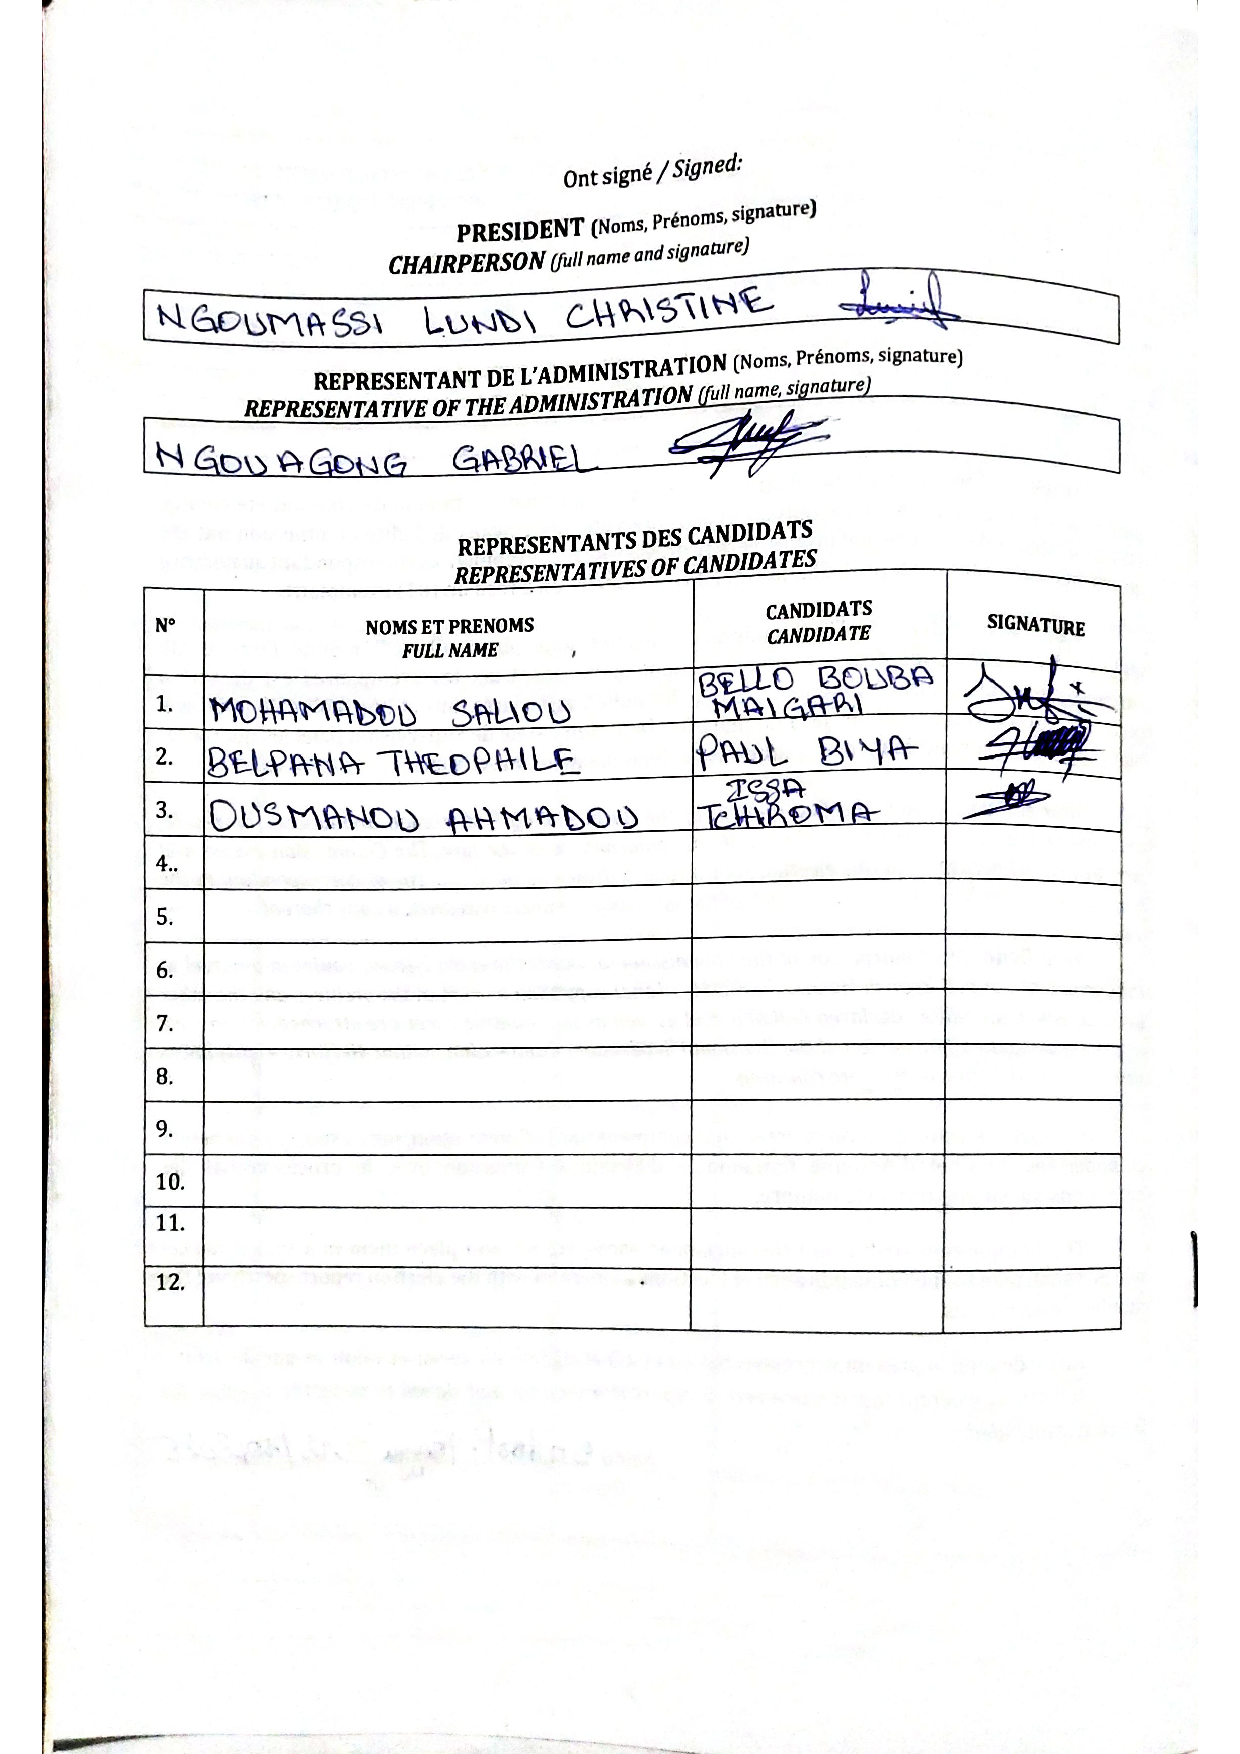 Ont signé / Signed:
PRESIDENT (Noms, Prénoms, signature)
CHAIRPERSON (full name and signature)
NGOUMASSI LUNDI CHRISTINE
REPRESENTANT DE L'ADMINISTRATION (Noms, Prénoms, signature)
REPRESENTATIVE OF THE ADMINISTRATION (full name, signature)
NGOUAGONG GABRIEL
REPRESENTANTS DES CANDIDATS
REPRESENTATIVES OF CANDIDATES
N° NOMS ET PRENOMS FULL NAME CANDIDATS CANDIDATE SIGNATURE
1. MOHAMADOU SALIOU BELLO BOUBA MAIGARI
2. BELPANA THEOPHILE PAUL BIYA
3. OUSMANOU AHMADOU ISSA TCHIROMA
4..
5.
6.
7.
8.
9.
10.
11.
12.